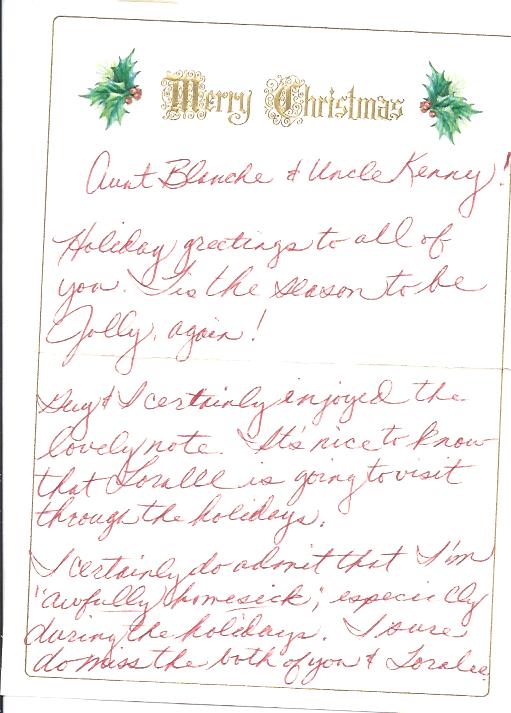 Merry Christmas
Aunt Blanche & Uncle Kenny!
Holiday greetings to all of
you. 'Tis the season to be
Jolly, again!
Guy & I certainly enjoyed the
lovely note. It's nice to know
that Loralee is going to visit
through the holidays.
I certainly do admit that I'm
"awfully homesick", especially
during the holidays. I sure
do miss the both of you & Loralee.